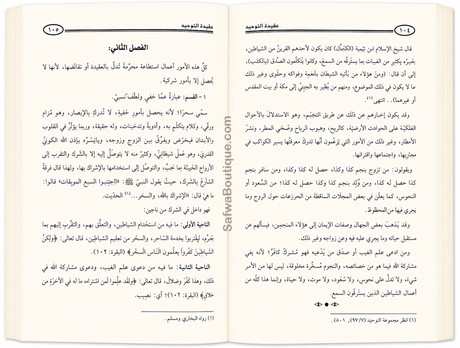 عقيدة التوحيد
١٠٤
قال شيخ الإسلام ابن تيمية (كَثَلَثُهُ) كان يكون لأحدهم القرينُ من الشياطين،
يخبره بكثير من المغيبات بما يسترقُه من السمع، وكانوا يخلطون الصدق بالكذب،
إلى أن قال: (ومن هؤلاء من يأتيه الشيطان بأطعمة وفواكه وحلوى وغير ذلك
ما لا يكون في ذلك الموضع، ومنهم من يطير به الجني إلى مكة أو بيت المقدس
أو غيرهما).. انتهى (١)
وقد يكون إخبارهم عن ذلك عن طريق التنجيم، وهو الاستدلالُ بالأحوال
الفلكيّة على الحوادث الأرضية، كأوقات هبوب الرياح ومجيء المطر، وتغير
الأسعار، وغير ذلك من الأمور التي يزعمون أنها تدرك معرفتُها بسير الكواكب في
مجاريها، واجتماعها وافتراقها.
ويقولون: من تزوج بنجم كذا وكذا، حصل له كذا وكذا، ومن سافر بنجم
كذا حصل له كذا، ومن وُلد بنجم كذا وكذا حصل له كذا؛ من السعود أو
النحوس، كما يعلن في بعض المجلات الساقطة من الخزعبلات حول البروج وما
يجري فيها من الحظوظ.
وقد يذهب بعض الجهال وضعاف الإيمان إلى هؤلاء المنجمين، فيسألهم عن
مستقبل حياته وما يجري عليه فيه وعن زواجه وغير ذلك.
ومن ادعى علم الغيب أو صدق من يدّعيه فهو مشركٌ كافر؛ لأنه يدعي
مشاركة الله فيما هو من خصائصه، والنجوم مسخّرة مخلوقة، ليس لها من الأمر
شيء، ولا تدلُّ على نحوس، ولا سُعود، ولا موت، ولا حياة، وإنما هذا كلُّه من
أعمال الشياطين الذين يسترقون السمع.
(١) انظر مجموعة التوحيد (٧٩٧، ٨٠١).
عقيدة التوحيد
١٠٥
الفصل الثاني:
كلُّ هذه الأمور أعمال شيطانية محرّمة تُخلُّ بالعقيدة أو تناقضها، لأنها لا
تحصل إلا بأمور شركية.
١ - السحر: عبارةٌ عمّا خفي ولطف سببُه.
سمّي سحرًا؛ لأنه يحصل بأمور خفية، لا تُدرك بالأبصار، وهو عزائم
ورُقى، وكلام يتكلّم به، وأدوية وتدخينات، وله حقيقة، ومنه ما يؤثّر في القلوب
والأبدان فيُمرض ويقتل ويفرّق بين المرء وزوجه، وتأثيره بإذن الله الكوني
القدري، وهو عمل شيطانيٌّ، وكثيرٌ منه لا يتوصّل إليه إلا بالشرك والتقرب إلى
الأرواح الخبيثة بما تحبّ، والتوصل إلى استخدامها بالإشراك بها، ولهذا قرنه
الشارع بالشرك، حيث يقول النبيُّ ﷺ: «اجتنبوا السبع الموبقات» قالوا:
ما هي قال: «الإشراك بالله، والسحر...(١) الحديث.
فهو داخل في الشرك من ناحيتين:
الناحية الأولى: ما فيه من استخدام الشياطين، والتعلّق بهم، والتقرب إليهم بما
يحبونه، ليقوموا بخدمة الساحر، والسحر من تعليم الشياطين، قال تعالى: ﴿وَلَكِنَّ
الشَّيَاطِينَ كَفَرُوا يُعَلِّمُونَ النَّاسَ السِّحْرَ﴾ (البقرة: ١٠٢).
الناحية الثانية: ما فيه من دعوى علم الغيب، ودعوى مشاركة الله في
ذلك، وهذا كُفرٌ وضلالٌ، قال تعالى: ﴿وَلَقَدْ عَلِمُوا لَمَنِ اشْتَرَاهُ مَا لَهُ فِي الْآخِرَةِ مِنْ
خَلَاقٍ﴾ (البقرة: ١٠٢)؛ أي: نصيب.
(١) رواه البخاري ومسلم.
SafwaBoutique.com